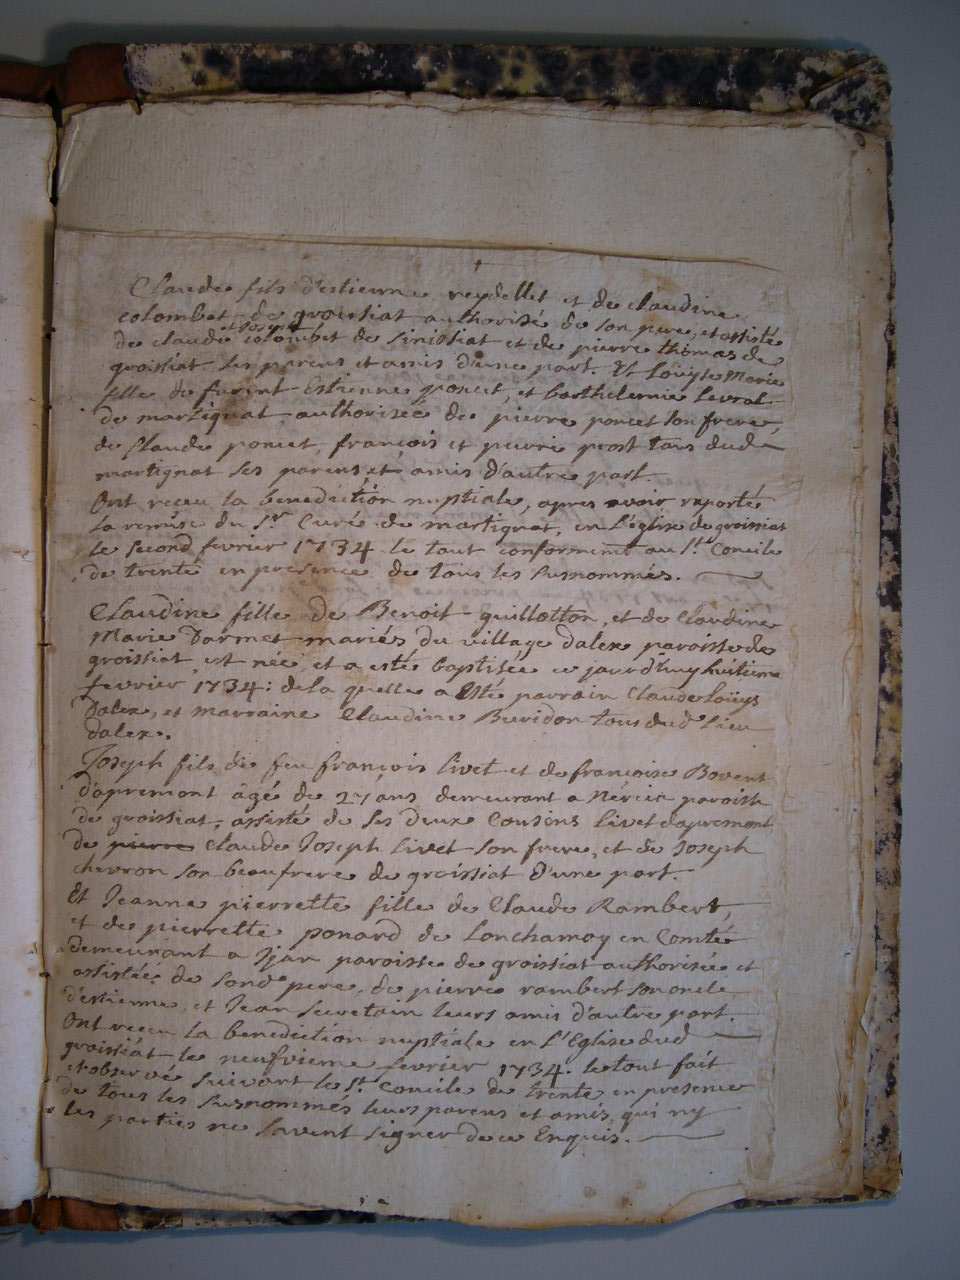 Claude fils d'estienne reydellet et de claudine
colombet de groissiat authorisé de son pere, et assisté
de claude et Joseph colombet de sinissiat et de pierre thomas de
groissiat ses parens et amis d'une part. Et Loüyse Marie
fille de furent Estienne poncet, et barthelemie Levrat
de martignat authorisée de pierre poncet son frere,
de Claude poncet, françois et pierre prost tous dud
martignat ses parens et amis d'autre part.
Ont receu la benediction nuptiale, apres avoir reporté
la remise du Sr Curé de martignat, en L'église de groissiat
le second fevrier 1734 le tout conformement au St Concile
de trente en presence de tous les susnommés.
Claudine fille de Benoit guillotton, et de Claudine
Marie Darmet mariés du village dalex paroisse de
groissiat, est née, et a esté baptisée ce jourd'huy huitieme
fevrier 1734: de la quelle a Esté parrain Claude Loüys
Dalex, et marraine Claudine Buridon tous dud lieu
dalex.
Joseph fils de feu françois livet et de françoise Bovent
d'apremont âgé de 27 ans demeurant a Nércia paroisse
de groissiat, assisté de ses deux Cousens livet d'apremont
de pierre Claude Joseph livet son frere, et de Joseph
chevron son beaufrere de groissiat d'une part.
Et Jeanne pierrette fille de Claude Rambert,
et de pierrette ponard de Lonchamoy en Comté
demeurant a paroisse de groissiat authorisée et
assistée de sond pere, de pierre rambert son oncle
d'estienne, et Jean Secretain leurs amis d'autre part.
Ont receu la benediction nuptiale en L'Eglise dud
groissiat le neufvieme fevrier 1734. le tout fait
et observé suivant le St Concile de trente en presence
de tous les susnommés leurs parens et amis, qui ny
les parties ne savent signer de ce Enquis.